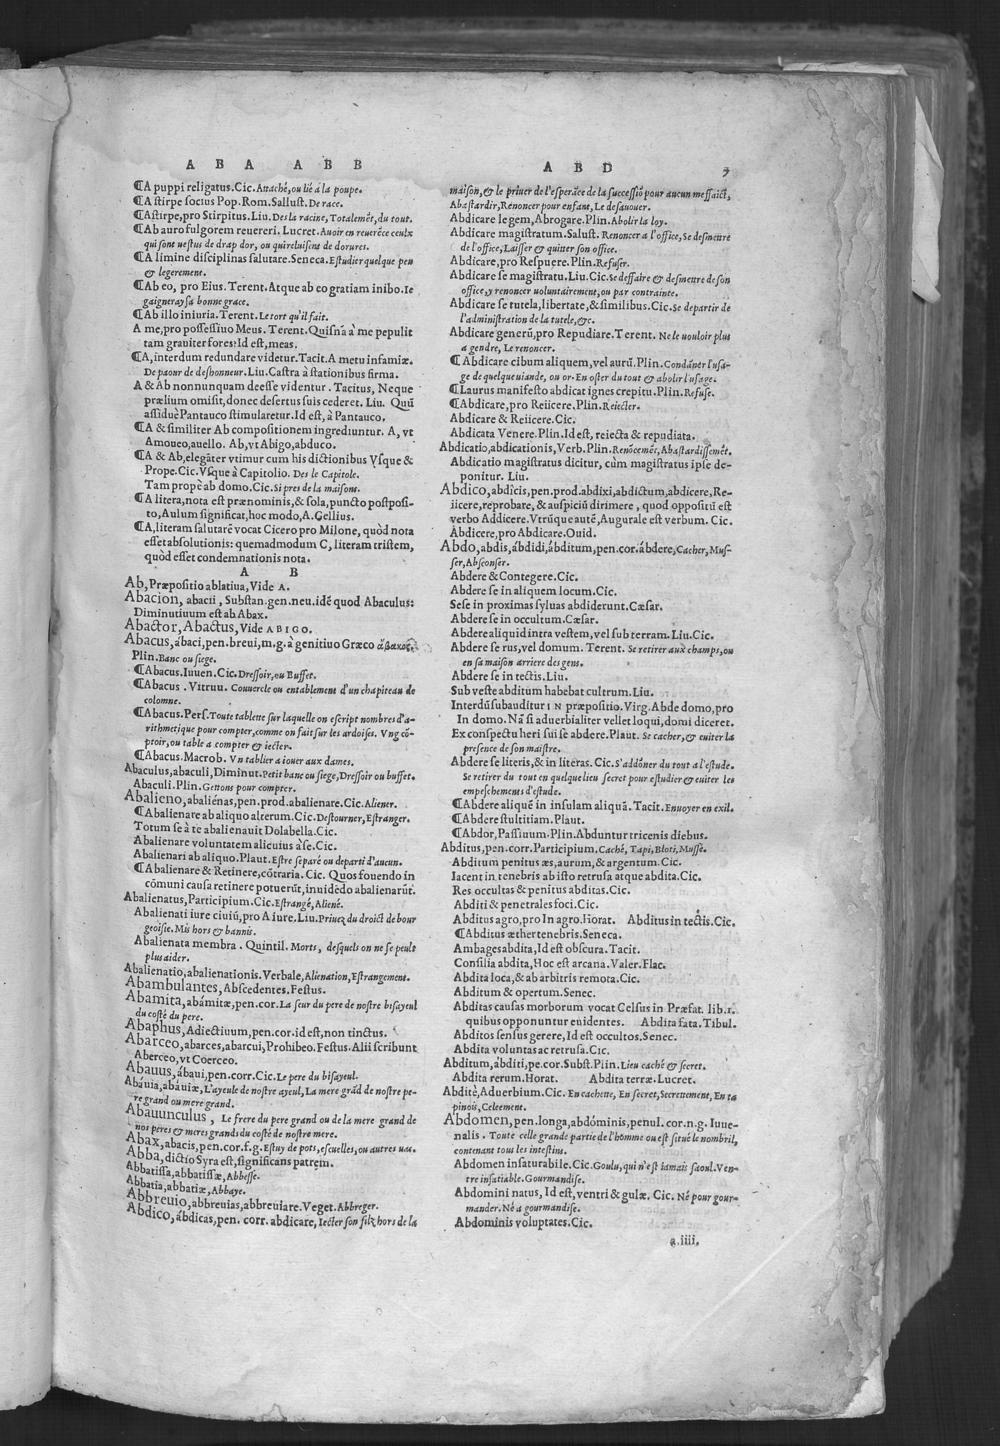 A B A A B B
¶A puppi religatus.Cic. Attaché, ou lié a la poupe.
¶A stirpe socius Pop. Rom. Sallust. De race.
¶Astirpe, pro Stirpitus. Liu. Des la racine, Totalemẽt, du tout.
¶Ab auro fulgorem reuereri. Lucret. Auoir en reuerẽce ceulx
qui sont uestus de drap dor, ou qui reluisent de dorures.
¶A limine disciplinas salutare. Seneca. Estudier quelque peu
& legerement.
¶Ab eo, pro Eius. Terent. Atque ab eo gratiam inibo. Ie
gaigneray sa bonne grace.
¶Ab illo iniuria. Terent. Le tort qu'il fait.
A me, pro possessiuo Meus. Terent. Quisnã à me pepulit
tam grauiter fores? Id est, meas.
¶A, interdum redundare videtur. Tacit. A metu infamiæ.
De paour de deshonneur. Liu. Castra à stationibus firma.
A & Ab nonnunquam deesse videntur. Tacitus, Neque
prælium omisit, donec desertus suis cederet. Liu. Quũ
assiduè Pantauco stimularetur. Id est, à Pantauco.
¶A & similiter Ab compositionem ingrediuntur. A, vt
Amoueo, auello. Ab, vt Abigo, abduco.
¶A & Ab, elegãter vtimur cum his dictionibus Vsque &
Prope. Cic. Vsque à Capitolio. Des le Capitole.
Tam propè ab domo. Cic. Si pres de la maison.
¶A litera, nota est prænominis, & sola, puncto postposi-
to, Aulum significat, hoc modo, A. Gellius.
¶A, literam salutarẽ vocat Cicero pro Milone, quòd nota
esset absolutionis: quemadmodum C, literam tristem,
quòd esset condemnationis nota.
A B
Ab, Præpositio ablatiua, Vide A.
Abacion, abacii, Substan. gen. neu. idẽ quod Abaculus:
Diminutiuum est ab Abax.
Abactor, Abactus, Vide ABIGO.
Abacus, ábaci, pen. breui, m. g. à genitiuo Græco ἄβακος.
Plin. Banc ou siege.
¶Abacus. Iuuen. Cic. Dressoir, ou Buffet.
¶Abacus. Vitruu. Couuercle ou entablement d'un chapiteau de
colomne.
¶Abacus. Pers. Toute tablette sur laquelle on escript nombres d'a-
rithmetique pour compter, comme on fait sur les ardoises. Vng cõ-
ptoir, ou table a compter & iecter.
¶Abacus. Macrob. Vn tablier a iouer aux dames.
Abaculus, abaculi, Diminut. Petit banc ou siege, Dressoir ou buffet.
Abaculi. Plin. Gettons pour compter.
Abalieno, abaliénas, pen. prod. abalienare. Cic. Aliener.
¶Abalienare ab aliquo alterum. Cic. Destourner, Estranger.
Totum se à te abalienauit Dolabella. Cic.
Abalienare voluntatem alicuius à se. Cic.
Abalienari ab aliquo. Plaut. Estre separé ou departi d'aucun.
¶Abalienare & Retinere, cõtraria. Cic. Quos fouendo in
cõmuni causa retinere potuerũt, inuidẽdo abalienarũt.
Abalienatus, Participium. Cic. Estrangé, Aliené.
Abalienati iure ciuiũ, pro A iure. Liu. Priuez du droict de bour
geoisie. Mis hors & bannis.
Abalienata membra. Quintil. Morts, desquels on ne se peult
plus aider.
Abalienatio, abalienationis. Verbale, Alienation, Estrangement.
Abambulantes, Abscedentes. Festus.
Abamita, abámitæ, pen. cor. La seur du pere de nostre bisayeul
du costé du pere.
Abaphus, Adiectiuum, pen. cor. id est, non tinctus.
Abarceo, abarces, abarcui, Prohibeo. Festus. Alii scribunt
Aberceo, vt Coerceo.
Abauus, ábaui, pen. corr. Cic. Le pere du bisayeul.
Abáuia, abáuiæ, L'ayeule de nostre ayeul, La mere grãd de nostre pe-
re grand ou mere grand.
Abauunculus, Le frere du pere grand ou de la mere grand de
nos peres & meres grands du costé de nostre mere.
Abax, abacis, pen. cor. f. g. Estuy de pots, escuelles, ou autres uas.
Abba, dictio Syra est, significans patrem.
Abbatissa, abbatissæ, Abbesse.
Abbatia, abbatiæ, Abbaye.
Abbreuio, abbreuias, abbreuiare. Veget. Abbreger.
Abdico, ábdicas, pen. corr. abdicare, Iecter son filz hors de la
A B D 3
maison, & le priuer de l'esperãce de la successiõ pour aucun meffaict,
Abastardir, Renoncer pour enfant, Le desauouer.
Abdicare legem, Abrogare. Plin. Abolir la loy.
Abdicare magistratum. Salust. Renoncer a l'office, Se desmettre
de l'office, Laisser & quitter son office.
Abdicare, pro Respuere. Plin. Refuser.
Abdicare se magistratu. Liu. Cic. Se deffaire & desmettre de son
office, y renoncer uoluntairement, ou par contrainte.
Abdicare se tutela, libertate, & similibus. Cic. Se departir de
l'administration de la tutele, &c.
Abdicare generũ, pro Repudiare. Terent. Ne le uouloir plus
a gendre, Le renoncer.
¶Abdicare cibum aliquem, vel aurũ. Plin. Condãner l'usa-
ge de quelque uiande, ou or. En oster du tout & abolir l'usage.
¶Laurus manifesto abdicat ignes crepitu. Plin. Refuse.
¶Abdicare, pro Reiicere. Plin. Reiecter.
Abdicare & Reiicere. Cic.
Abdicata Venere. Plin. Id est, reiecta & repudiata.
Abdicatio, abdicationis, Verb. Plin. Renõcemẽt, Abastardissemẽt.
Abdicatio magistratus dicitur, cùm magistratus ipse de-
ponitur. Liu.
Abdico, abdìcis, pen. prod. abdixi, abdictum, abdicere, Re-
iicere, reprobare, & auspiciũ dirimere, quod oppositũ est
verbo Addicere. Vtrũque autẽ, Augurale est verbum. Cic.
Abdicere, pro Abdicare. Ouid.
Abdo, abdis, ábdidi, ábditum, pen. cor. ábdere, Cacher, Mus-
ser, Absconser.
Abdere & Contegere. Cic.
Abdere se in aliquem locum. Cic.
Sese in proximas syluas abdiderunt. Cæsar.
Abdere se in occultum. Cæsar.
Abdere aliquid intra vestem, vel sub terram. Liu. Cic.
Abdere se rus, vel domum. Terent. Se retirer aux champs, ou
en sa maison arriere des gens.
Abdere se in tectis. Liu.
Sub veste abditum habebat cultrum. Liu.
Interdũ subauditur IN præpositio. Virg. Abde domo, pro
In domo. Nã si aduerbialiter vellet loqui, domi diceret.
Ex conspectu heri sui se abdere. Plaut. Se cacher, & euiter la
presence de son maistre.
Abdere se literis, & in literas. Cic. S'addõner du tout a l'estude.
Se retirer du tout en quelque lieu secret pour estudier & euiter les
empeschemens d'estude.
¶Abdere aliquẽ in insulam aliquã. Tacit. Enuoyer en exil.
¶Abdere stultitiam. Plaut.
¶Abdor, Passiuum. Plin. Abduntur tricenis diebus.
Abditus, pen. corr. Participium. Caché, Tapi, Bloti, Mussé.
Abditum penitus æs, aurum, & argentum. Cic.
Iacent in tenebris ab isto retrusa atque abdita. Cic.
Res occultas & penitus abditas. Cic.
Abditi & penetrales foci. Cic.
Abditus agro, pro In agro. Horat. Abditus in tectis. Cic.
¶Abditus æther tenebris. Seneca.
Ambages abdita, Id est obscura. Tacit.
Consilia abdita, Hoc est arcana. Valer. Flac.
Abdita loca, & ab arbitris remota. Cic.
Abditum & opertum. Senec.
Abditas causas morborum vocat Celsus in Præfat. lib.1.
quibus opponuntur euidentes. Abdita fata. Tibul.
Abditos sensus gerere, Id est occultos. Senec.
Abdita voluntas ac retrusa. Cic.
Abditum, ábditi, pe. cor. Subst. Plin. Lieu caché & secret.
Abdita rerum. Horat. Abdita terræ. Lucret.
Abditè, Aduerbium. Cic. En cachette, En secret, Secretement, En ta
pinois, Celeement.
Abdomen, pen. longa, abdóminis, penul. cor. n. g. Iuue-
nalis. Toute celle grande partie de l'homme ou est situé le nombril,
contenant tous les intestins.
Abdomen insaturabile. Cic. Goulu, qui n'est iamais saoul. Ven-
tre insatiable. Gourmandise.
Abdomini natus, Id est, ventri & gulæ. Cic. Né pour gour-
mander. Né a gourmandise.
Abdominis voluptates. Cic.
a.iiii.